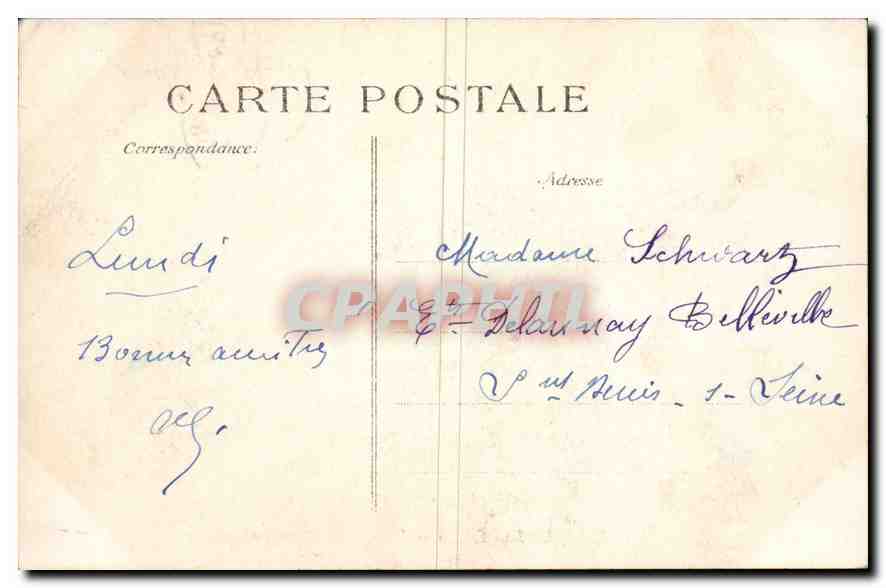 CARTE POSTALE
Correspondance:
Adresse
Lundi
Bonnes amitiés
Madame Schwartz
Ets Delaunay Belleville
St Denis - s - Seine
CPAPHIL